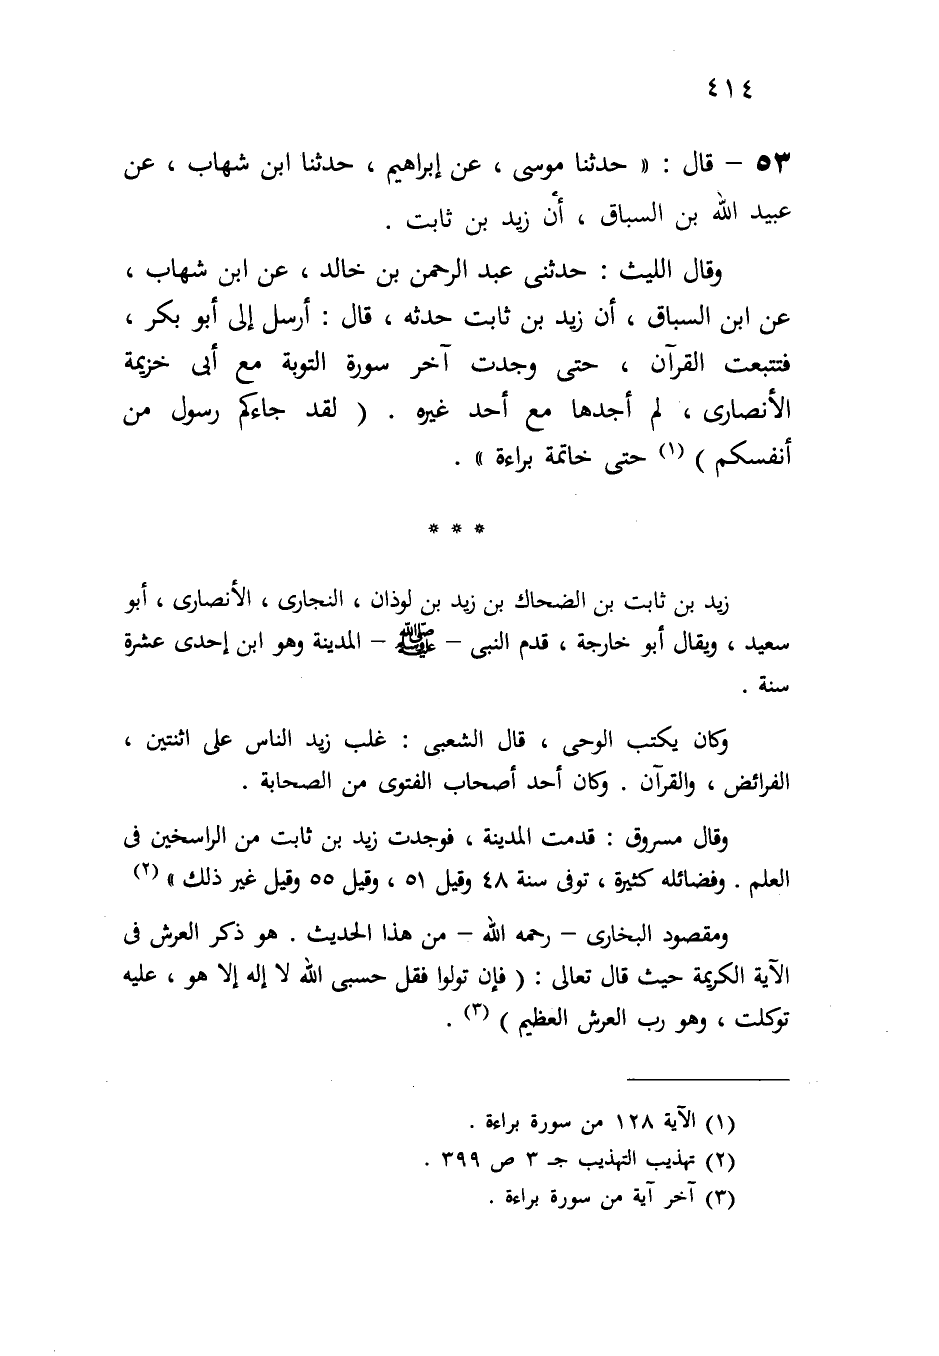 ٤١٤
٥٣ – قال : « حدثنا موسى ، عن إبراهيم ، حدثنا ابن شهاب ، عن
عبيد الله بن السباق ، أن زيد بن ثابت .
وقال الليث : حدثنى عبد الرحمن بن خالد ، عن ابن شهاب ،
عن ابن السباق ، أن زيد بن ثابت حدثه ، قال : أرسل إلى أبو بكر ،
فتتبعت القرآن ، حتى وجدت آخر سورة التوبة مع أبى خزيمة
الأنصارى ، لم أجدها مع أحد غيره . ( لقد جاءكم رسول من
أنفسكم ) (١) حتى خاتمة براءة » .
* * *
زيد بن ثابت بن الضحاك بن زيد بن لوذان ، النجارى ، الأنصارى ، أبو
سعيد ، ويقال أبو خارجة ، قدم النبى – ﷺ – المدينة وهو ابن إحدى عشرة
سنة .
وكان يكتب الوحى ، قال الشعبى : غلب زيد الناس على اثنتين ،
الفرائض ، والقرآن . وكان أحد أصحاب الفتوى من الصحابة .
وقال مسروق : قدمت المدينة ، فوجدت زيد بن ثابت من الراسخين فى
العلم . وفضائله كثيرة ، توفى سنة ٤٨ وقيل ٥١ ، وقيل ٥٥ وقيل غير ذلك » (٢)
ومقصود البخارى – رحمه الله – من هذا الحديث . هو ذكر العرش فى
الآية الكريمة حيث قال تعالى : ( فإن تولوا فقل حسبى الله لا إله إلا هو ، عليه
توكلت ، وهو رب العرش العظيم ) (٣) .
(١) الآية ١٢٨ من سورة براءة .
(٢) تهذيب التهذيب جـ ٣ ص ٣٩٩ .
(٣) آخر آية من سورة براءة .